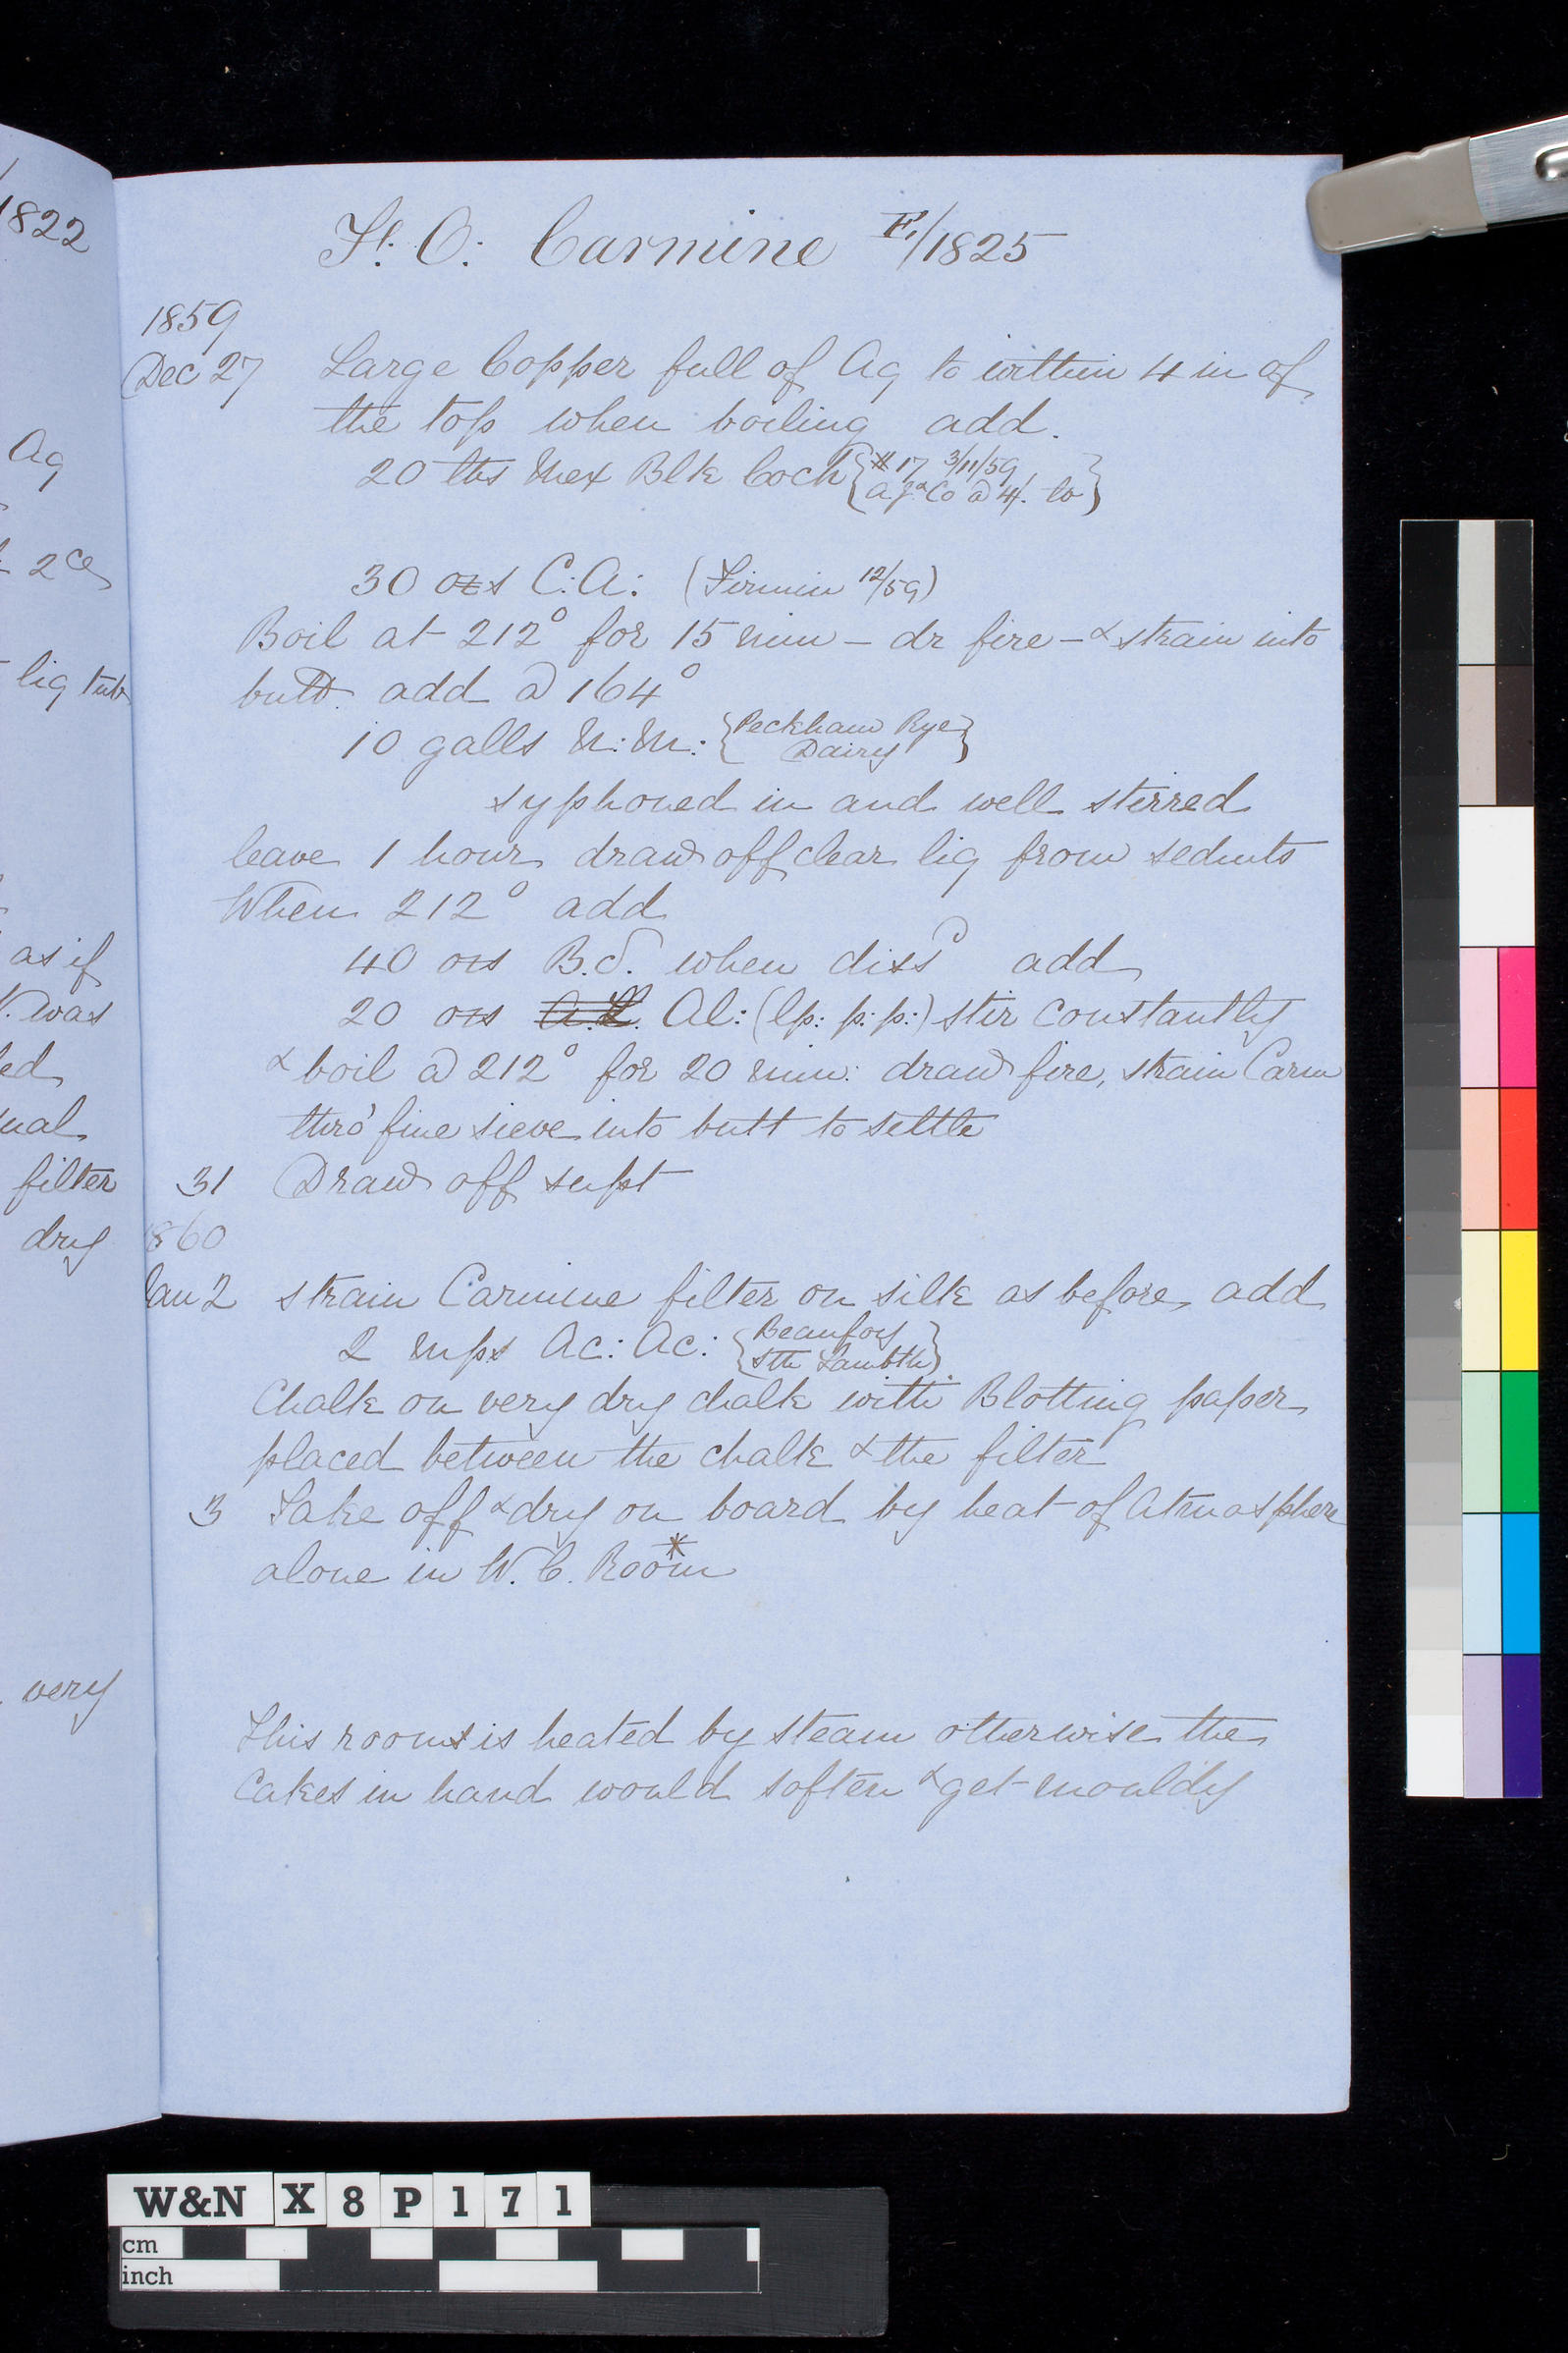 1822
Ag
2ce
liq tub
as if
was
filter
dry
very
Ft. O: Carmine F./1825
1859
Dec 27 Large Copper full of Aq to within 4 in of
the top when boiling add.
20 lbs Mex Blk Coch { #17 3/11/59
& Co @ 4/. lb }
30 ozs C: A: (Firmin 12/59)
Boil at 212° for 15 min – dr fire – & strain into
butt add @ 164°
10 galls N: M: { Peckham Rye
Dairy }
syphoned in and well stirred
leave 1 hour draw off clear liq from sedmts
When 212° add
40 ozs B.S. when dissd add
20 ozs A.L. Al: (lp: p: p:) stir constantly
& boil @ 212° for 20 min: draw fire, strain Carm
thro' fine sieve into butt to settle
31 Draw off supt
1860
Jan 2 strain Carmine filter on silk as before, add
2 mps Ac: Ac: { Beaufoy
Sth Lambth }
Chalk on very dry chalk with Blotting paper
placed between the chalk & the filter
3 Take off & dry on board by heat of Atmosphere
alone in W. C. Room *
This room is heated by steam otherwise the
Cakes in hand would soften & get mouldy
W&N X 8 P 1 7 1
cm
inch